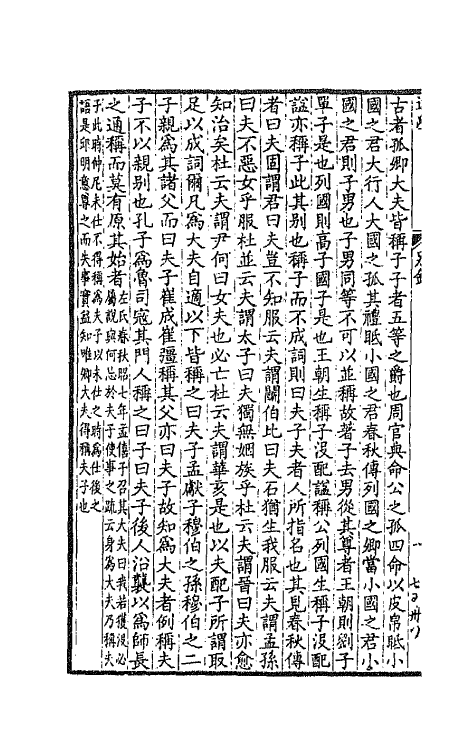 古者孤卿大夫皆稱子子者五等之爵也周官典命公之孤四命以皮帛眡小
國之君大行人大國之孤其禮眡小國之君春秋傳列國之卿當小國之君小
國之君則子男也子男同等不可以並稱故著子去男從其尊者王朝則劉子
單子是也列國則高子國子是也王朝生稱子沒配謚稱公列國生稱子沒配
謚亦稱子此其別也稱子而不成詞則曰夫子夫者人所指名也其見春秋傳
者曰夫固謂君曰夫豈不知服云夫謂鬬伯比曰夫石猶生我服云夫謂孟孫
曰夫不惡女乎服杜並云夫謂太子曰夫獨無姻族乎杜云夫謂晉曰夫亦愈
知治矣杜云夫謂尹何曰女夫也必亡杜云夫謂華亥是也以夫配子所謂取
足以成詞爾凡為大夫自適以下皆稱之曰夫子孟獻子穆伯之孫穆伯之二
子親為其諸父而曰夫子崔成崔彊稱其父亦曰夫子故知為大夫者例稱夫
子不以親別也孔子為魯司寇其門人稱之曰子曰夫子後人沿襲以為師長
之通稱而莫有原其始者左氏春秋昭七年孟僖子召其大夫曰我若獲沒必
屬說與何忌於夫子使事之疏云身為大夫乃稱夫
子此時仲尼未仕不得稱為夫子以未仕之時為仕後之
語是邱明意尊之而失事實益知唯卿大夫得稱夫子也